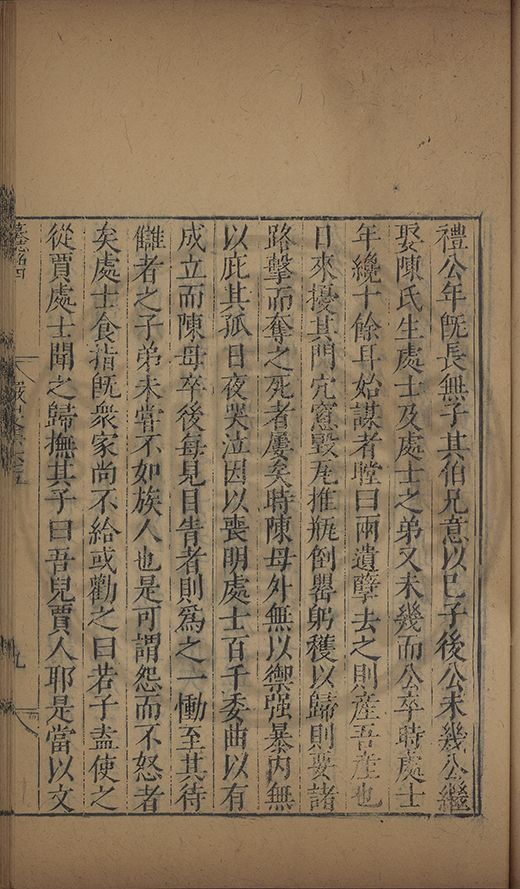 禮公年旣長無子其伯兄意以己子後公未幾公繼
娶陳氏生處士及處士之弟又未幾而公卒時處士
年纔十餘耳始謀者瞠曰兩遺孽去之則產吾產也
日來擾其門穴窻毀瓦推瓶倒罌躬穫以歸則要諸
路擊而奪之死者屢矣時陳母外無以禦强暴內無
以庇其孤日夜哭泣因以喪明處士百千委曲以有
成立而陳母卒後每見目眚者則爲之一慟至其待
讎者之子弟未嘗不如族人也是可謂怨而不怒者
矣處士食指旣衆家尚不給或勸之曰若子盍使之
從賈處士聞之歸撫其子曰吾兒賈人耶是當以文
九